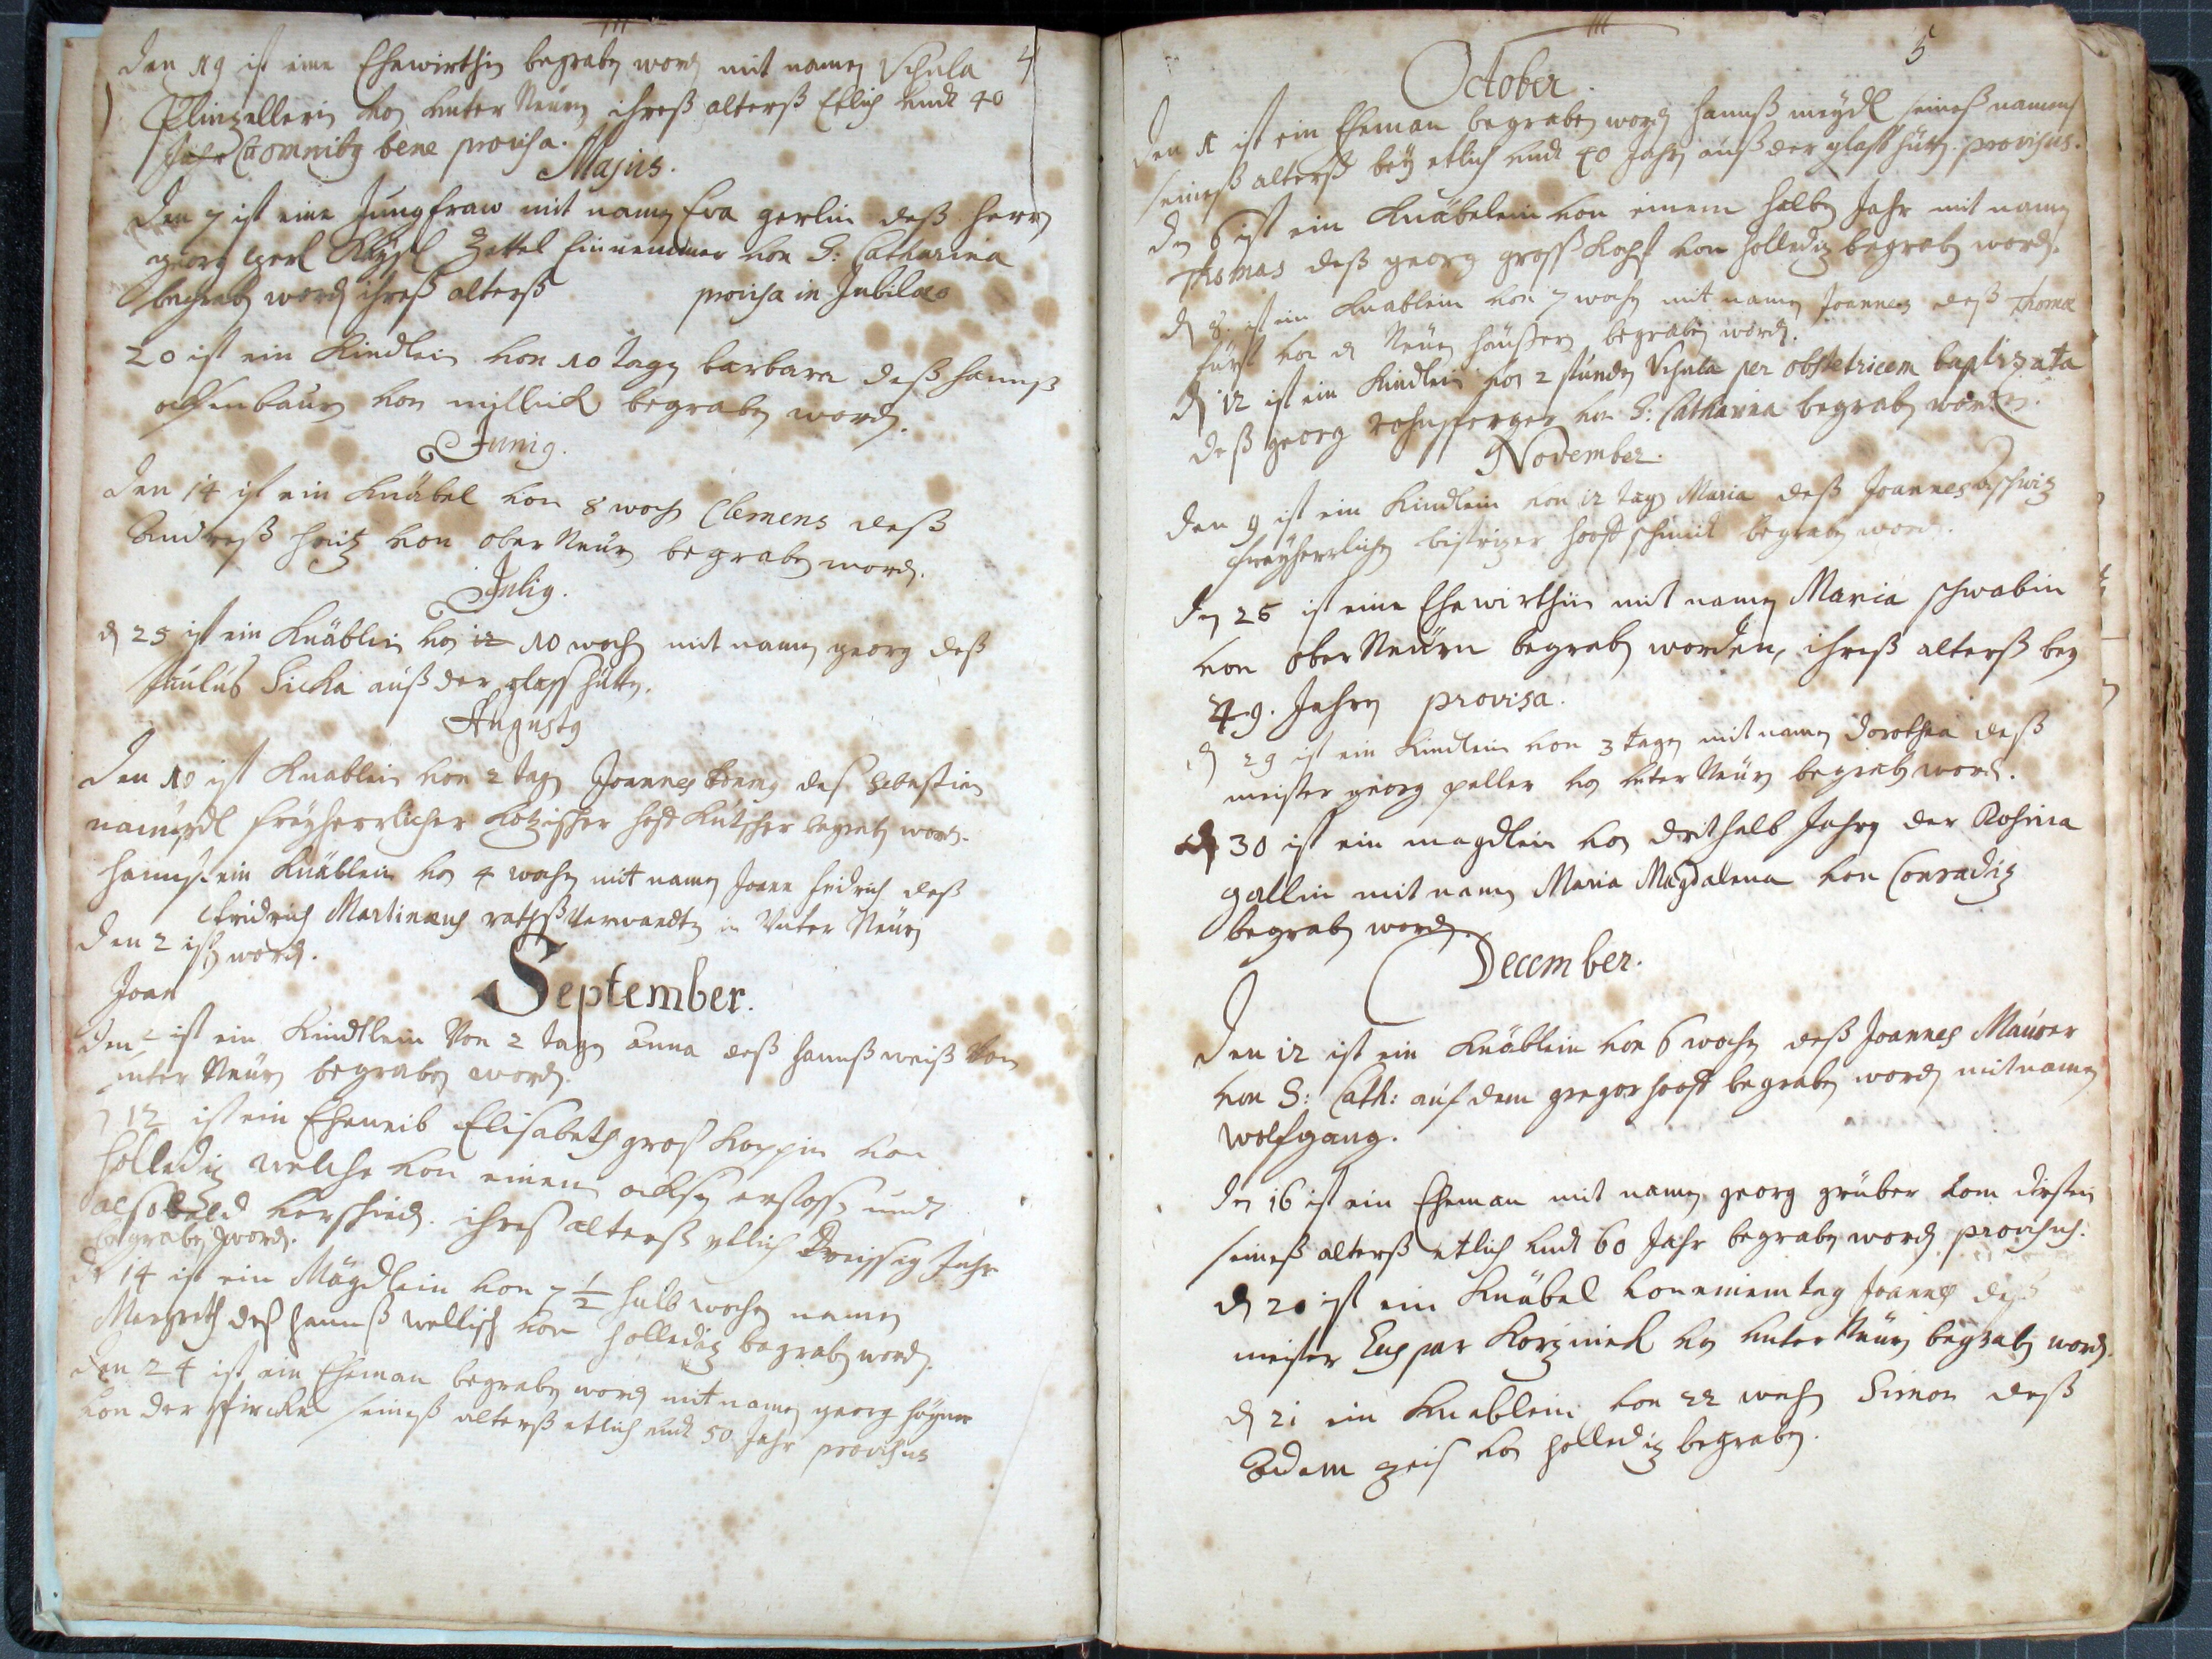 4
Den 19 ist eine Ehewirthin begraben word mit namen Vrsula
von unter Neurn ihreß alterß etlich undt 40
Jahr omnibus bene provisa.
Majus.
Den 7 ist eine Jungfraw mit namen Eva gerlin deß herrn
georg gerl Zettel Einnemmer von S: Catharina
begraben word ihreß alterß provisa in Jubilaeo
20 ist ein Kindlein von 10 tagen barbara deß hannß
von begraben word.
Junius.
Den 14 ist ein Knäbel von 8 woch Clemens deß
Andreß von ober Neurn begraben word.
Julius.
den 25 ist ein Knäblein von 12 10 wochen mit namen georg deß
Paulus Sicka auß der glasshütten.
Augustus
Den 10 ist Knablein von 2 tagen Joannes deß Sebastian
freyherrlicher Kotzischer hoff Kutscher begraben word.
hannß ein Knäblein von 4 wochen mit namen Joann fridrich deß
fridrich Martinaeus rathßverwandten in Unter Neurn
Den 2 ist word.
Joan
September.
Den 2 ist ein Kindtlein Von 2 tagen anna deß hannß weiß von
unter Neurn begraben word.
12 ist ein Eheweib Elisabeth groß Koppin von
holledig welche von einem ochsen erstossen undt
alsobald verschied. ihreß alterß etlich Dreissig Jahr
begraben word.
Den 14 ist ein Mägdlein von 7 1/2 halb wochen namen
Margreth deß hannß wellisch von holledig begraben word.
Den 24 ist ein Eheman begraben word mit namen georg
von der seineß alterß etlich undt 50 Jahr provisus
5
October.
Den 1 ist ein Eheman begraben word hannß meydl seineß namenß
seineß alterß bey etlich undt 40 Jahr auß der glasshütten. provisus.
Den 6 ist ein Knäbelein von einem halben Jahr mit namen
Thomas deß georg grosskopf von holledig begraben word.
den 8. ist ein Knablein von 7 wochen mit namen Joannes deß Thomae
fürst von den Neuen häußern begraben word.
den 12 ist ein Kindlein von 2 stunden Vrsula per obstetricem baptizata
deß georg von S: Catharina begraben worden.
November.
Den 9 ist ein Kindlein von 12 tagen Maria deß Joannes
freyherrlichen bistrizer hooffschmidt begraben word.
Den 25 ist eine Ehewirthin mit namen Maria schwabin
von Ober Neurn begraben worden, ihreß alterß bey
49. Jahren provisa.
den 29 ist ein Kindlein von 3 tagen mit namen Dorothea deß
meister georg peller von unter Neurn begraben word.
den 30 ist ein magdlein von drithalb Jahren der Rosina
gallin mit namen Maria Magdalena von Conradiz
begraben word.
December.
Den 12 ist ein Knäblein von 6 wochen deß Joannes Maurer
von S: Cath: auf dem gregorhooff begraben word mit namen
Wolfgang.
Den 16 ist ein Eheman mit namen georg gruber vom
seineß alterß etlich undt 60 Jahr begraben word provisus.
den 20 ist ein Knäbel von einem tag Joannes deß
meister Caspar Korzinek von unter Neurn begraben word.
den 21 ein Knablein von 22 wochen Simon deß
Adam zeis von holledig begraben.